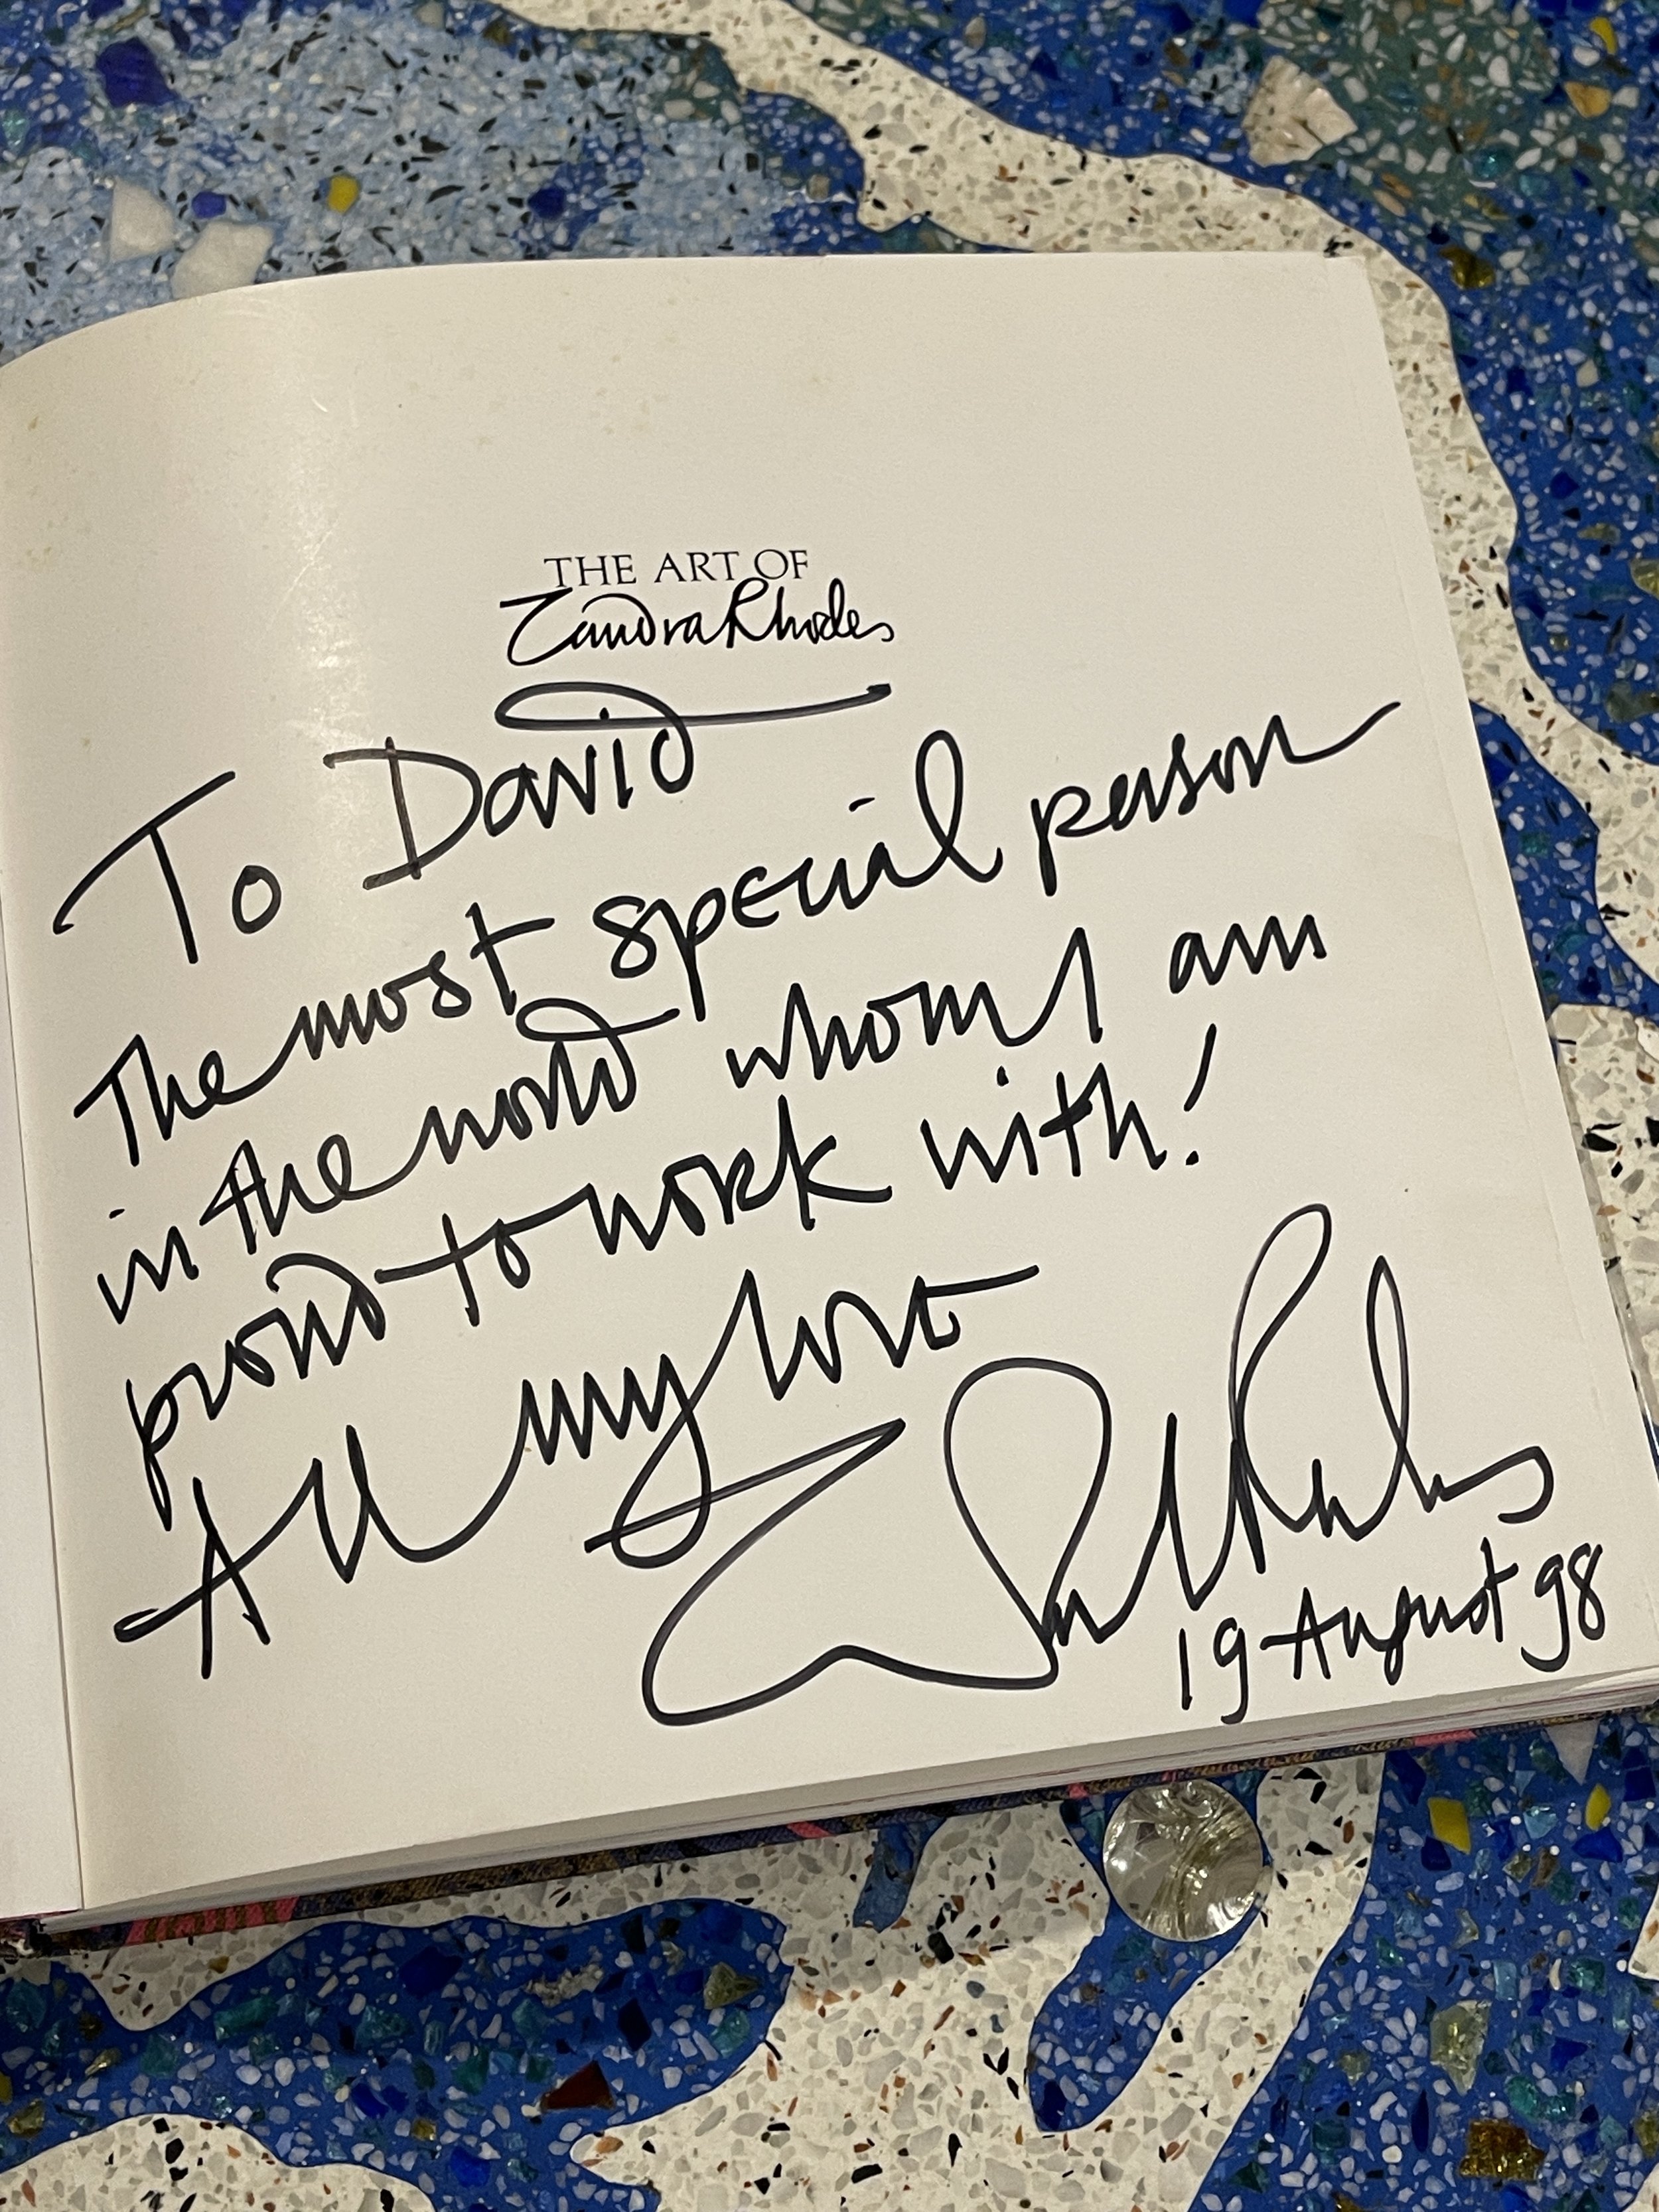 THE ART OF
Zandra Rhodes
To David
The most special person
in the world whom I am
proud to work with!
All my love
Zandra Rhodes
19 August 98